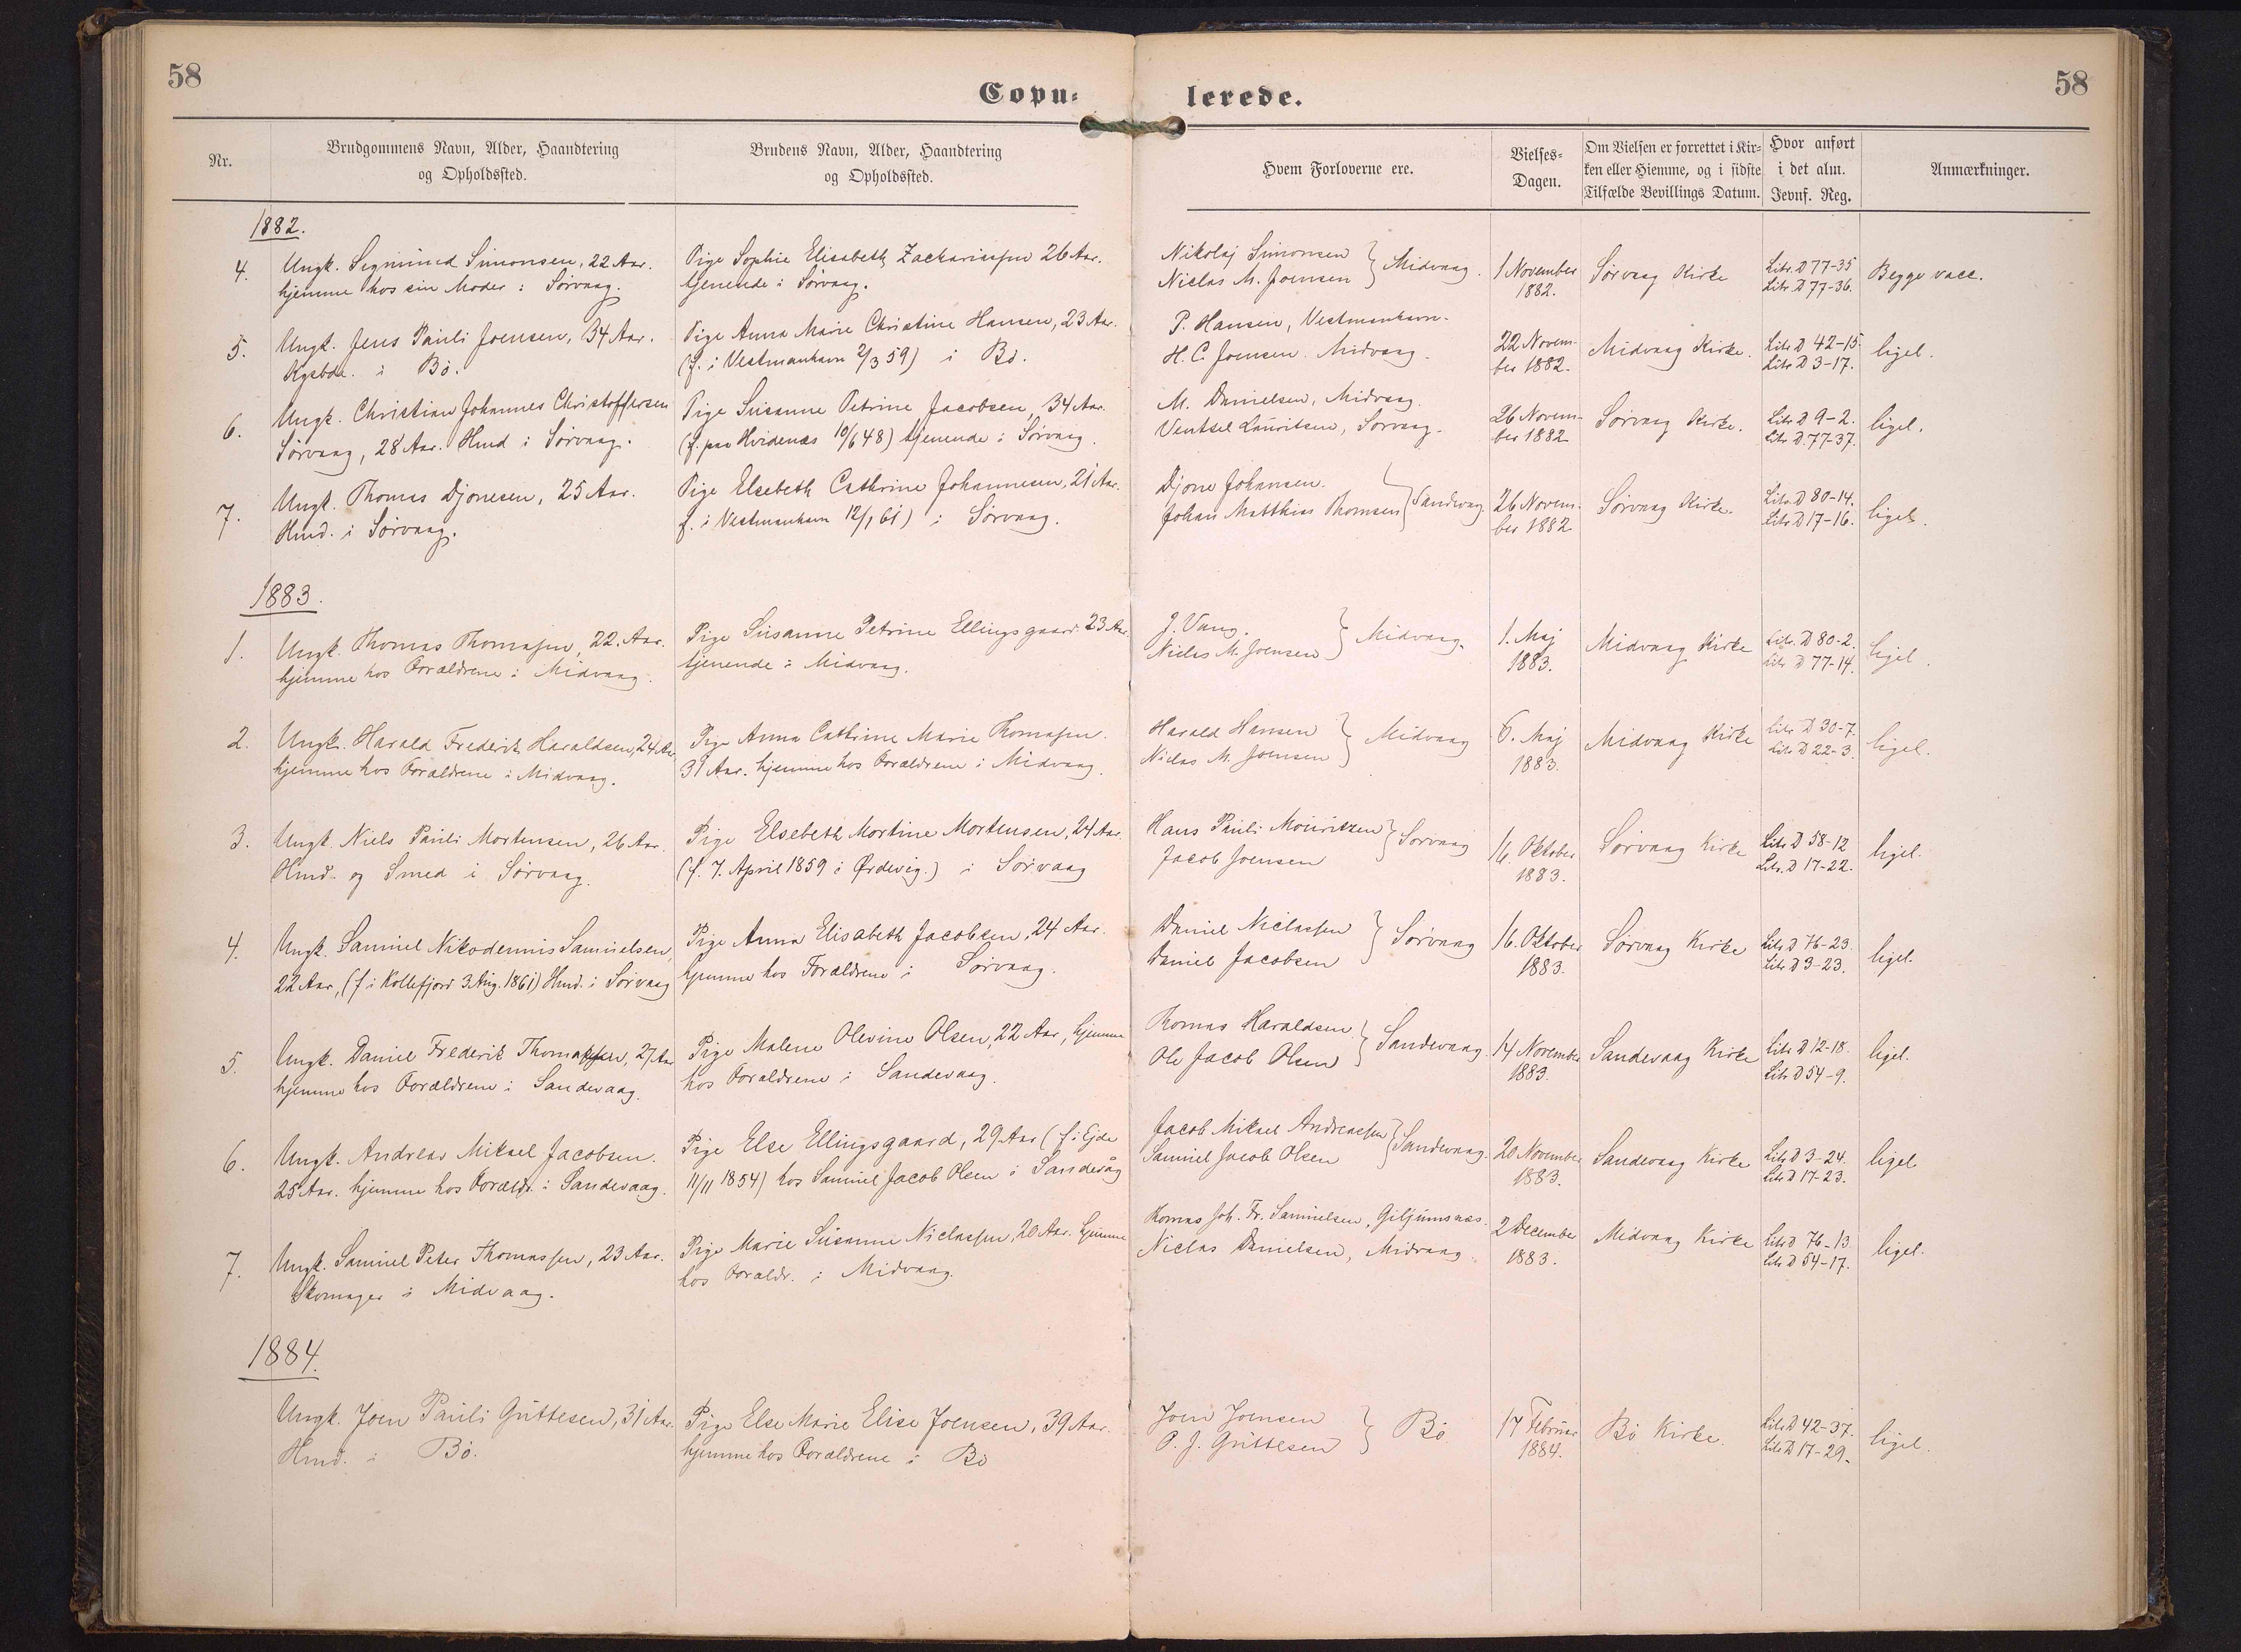 58
58
Copu=
lerede.
Nr.
Brudgommens Navn, Alder, Haandtering
og Opholdssted.
Brudens Navn, Alder, Haandtering
og Opholdssted.
Hvem Forloverne ere.
Vielses-
Dagen.
Om Vielsen er forrettet i Kir-
ken eller Hiemme, og i sidste
Tilfælde Bevillings Datum.
Hvor anført
i det alm.
Jevnf. Reg.
Anmærkninger.
1882.
4.
Ungk. Sigmund Simonsen, 22 Aar.
hjemme hos sin Moder i Sørvaag.
Pige Sophie Elisabeth Zachariasen 26 Aar.
tjenende i Sørvaag.
Nikolaj Simonsen
Niclas M. Joensen } Midvaag.
1 November
1882.
Sørvaag Kirke
Litr. D 77-35
Litr. D 77-36.
Begge vacc.
5.
Ungk. Jens Pauli Joensen, 34 Aar.
Kgsbde. i Bø.
Pige Anna Marie Christine Hansen, 23 Aar.
(f. i Vestmanhavn 2/3 59) i Bø.
P. Hansen, Vestmanhavn.
H. C. Joensen. Midvaag.
22 Novem-
ber 1882.
Midvaag Kirke.
Litr D 42-15.
Litr D 3-17.
ligel.
6.
Ungk. Christian Johannes Christoffersen
Sørvaag, 28 Aar. Hmd i Sørvaag.
Pige Susanne Petrine Jacobsen, 34 Aar.
(f. paa Hvidenæs 10/6 48) tjenende i Sørvaag.
M. Danielsen, Midvaag.
Ventsel Lauritsen, Sørvaag.
26 Novem-
ber 1882
Sørvaag Kirke.
Litr D 9-2.
Litr D. 77-37.
ligel.
7.
Ungk. Thomas Djonesen, 25 Aar.
Hmd. i Sørvaag.
Pige Elsebeth Cathrine Johannesen, 21 Aar.
f. i Vestmanhavn 12/1 61) i Sørvaag.
Djone Johansen.
Johan Matthias Thomsen } Sandevaag
26 Novem-
ber 1882
Sørvaag Kirke.
Litr. D 80-14.
Litr D 17-16.
ligel.
1883.
1.
Ungk. Thomas Thomasen, 22. Aar.
hjemme hos Forældrene i Midvaag.
Pige Susanne Petrine Ellingsgaard 23 Aar.
tjenende i Midvaag.
J. Vang.
Niclas M. Joensen } Midvaag.
1. Maj
1883.
Midvaag Kirke
Litr. D 80-2.
Litr D 77-14.
ligel.
2.
Ungk. Harald Frederik Haraldsen, 24 Aar
hjemme hos Forældrene i Midvaag.
Pige Anna Cathrine Marie Thomasen.
31 Aar. hjemme hos Forældrene i Midvaag.
Harald Hansen
Niclas M. Joensen } Midvaag
6. Maj
1883.
Midvaag Kirke
Litr D 30-7.
Litr D 22-3.
ligel.
3.
Ungk. Niels Pauli Mortensen, 26 Aar.
Hmd. og Smed i Sørvaag.
Pige Elsebeth Mortine Mortensen, 24 Aar.
(f. 7. April 1859 i Ørdevig.) i Sørvaag
Hans Pauli Mouritzen
Jacob Joensen } Sørvaag
16. Oktober
1883.
Sørvaag Kirke
Litr D 58-12
Litr. D 17-22.
ligel.
4.
Ungk. Samuel Nikodemus Samuelsen,
22 Aar, (f i Kollefjord 3. Aug. 1861) Hmd. i Sørvaag
Pige Anna Elisabeth Jacobsen, 24 Aar.
hjemme hos Forældrene i Sørvaag.
Daniel Niclassen
Daniel Jacobsen } Sørvaag
16. Oktober
1883.
Sørvaag Kirke
Litr D 76-23.
Litr D 3-23.
ligel.
5.
Ungk. Daniel Frederik Thomassen, 27 Aar
hjemme hos Forældrene i Sandevaag.
Pige Malene Olevine Olsen, 22 Aar, hjemme
hos Forældrene i Sandevaag.
Thomas Haraldsen
Ole Jacob Olsen } Sandevaag.
14 November
1883.
Sandevaag Kirke
Litr D 12-18.
Litr D 54-9.
ligel.
6.
Ungk. Andreas Mikael Jacobsen.
25 Aar. hjemme hos Forældr. i Sandevaag.
Pige Else Ellingsgaard, 29 Aar (f. i Ejde
11/11 1854) hos Samuel Jacob Olsen i Sandevåg
Jacob Mikael Andreasen
Samuel Jacob Olsen } Sandevaag.
20 November
1883.
Sandevaag Kirke
Litr D 3-24.
Litr D 17-23.
ligel.
7.
Ungk. Samuel Peter Thomassen, 23 Aar.
Skomager i Midvaag.
Pige Marie Susanne Niclassen, 20 Aar. hjemme
hos Forældr. i Midvaag.
Thomas Joh. Fr. Samuelsen, Giljumsnæs.
Niclas Danielsen, Midvaag.
2 December
1883.
Midvaag Kirke
Litr D 76-13
Litr D 54-17.
ligel.
1884.
Ungk. Joen Pauli Guttesen, 31 Aar.
Hmd. i Bø.
Pige Else Marie Elise Joensen, 39 Aar.
hjemme hos Forældrene i Bø
Joen Joensen
P. J. Guttesen } Bø
17 Februar
1884.
Bø Kirke.
Litr D 42-37.
Litr D 17-29.
ligel.